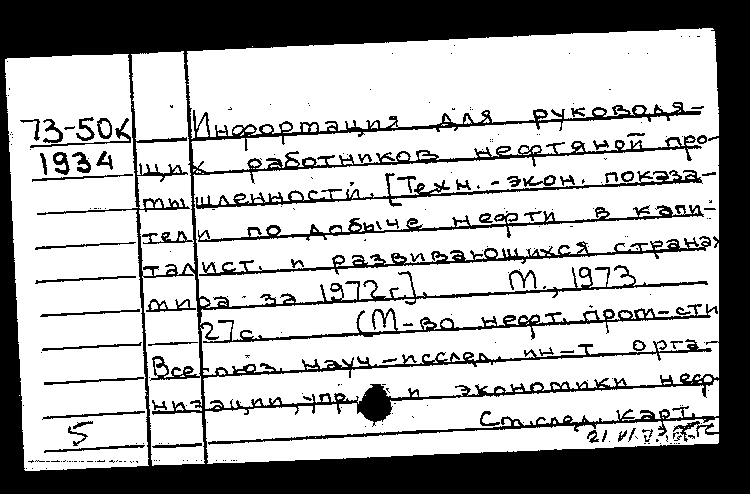 73-50к
1934
Информация для руководя-
щих работников нефтяной про-
мышленности. [Техн.-экон. показа-
тели по добыче нефти в капи-
талист. и развивающихся странах
мира за 1972г.]. М., 1973.
27с. (М-во нефт. пром-сти
Всесоюз. науч.-исслед. ин-т орга-
низации, упр. и экономики неф
5
См. след. карт.
21.VI.73